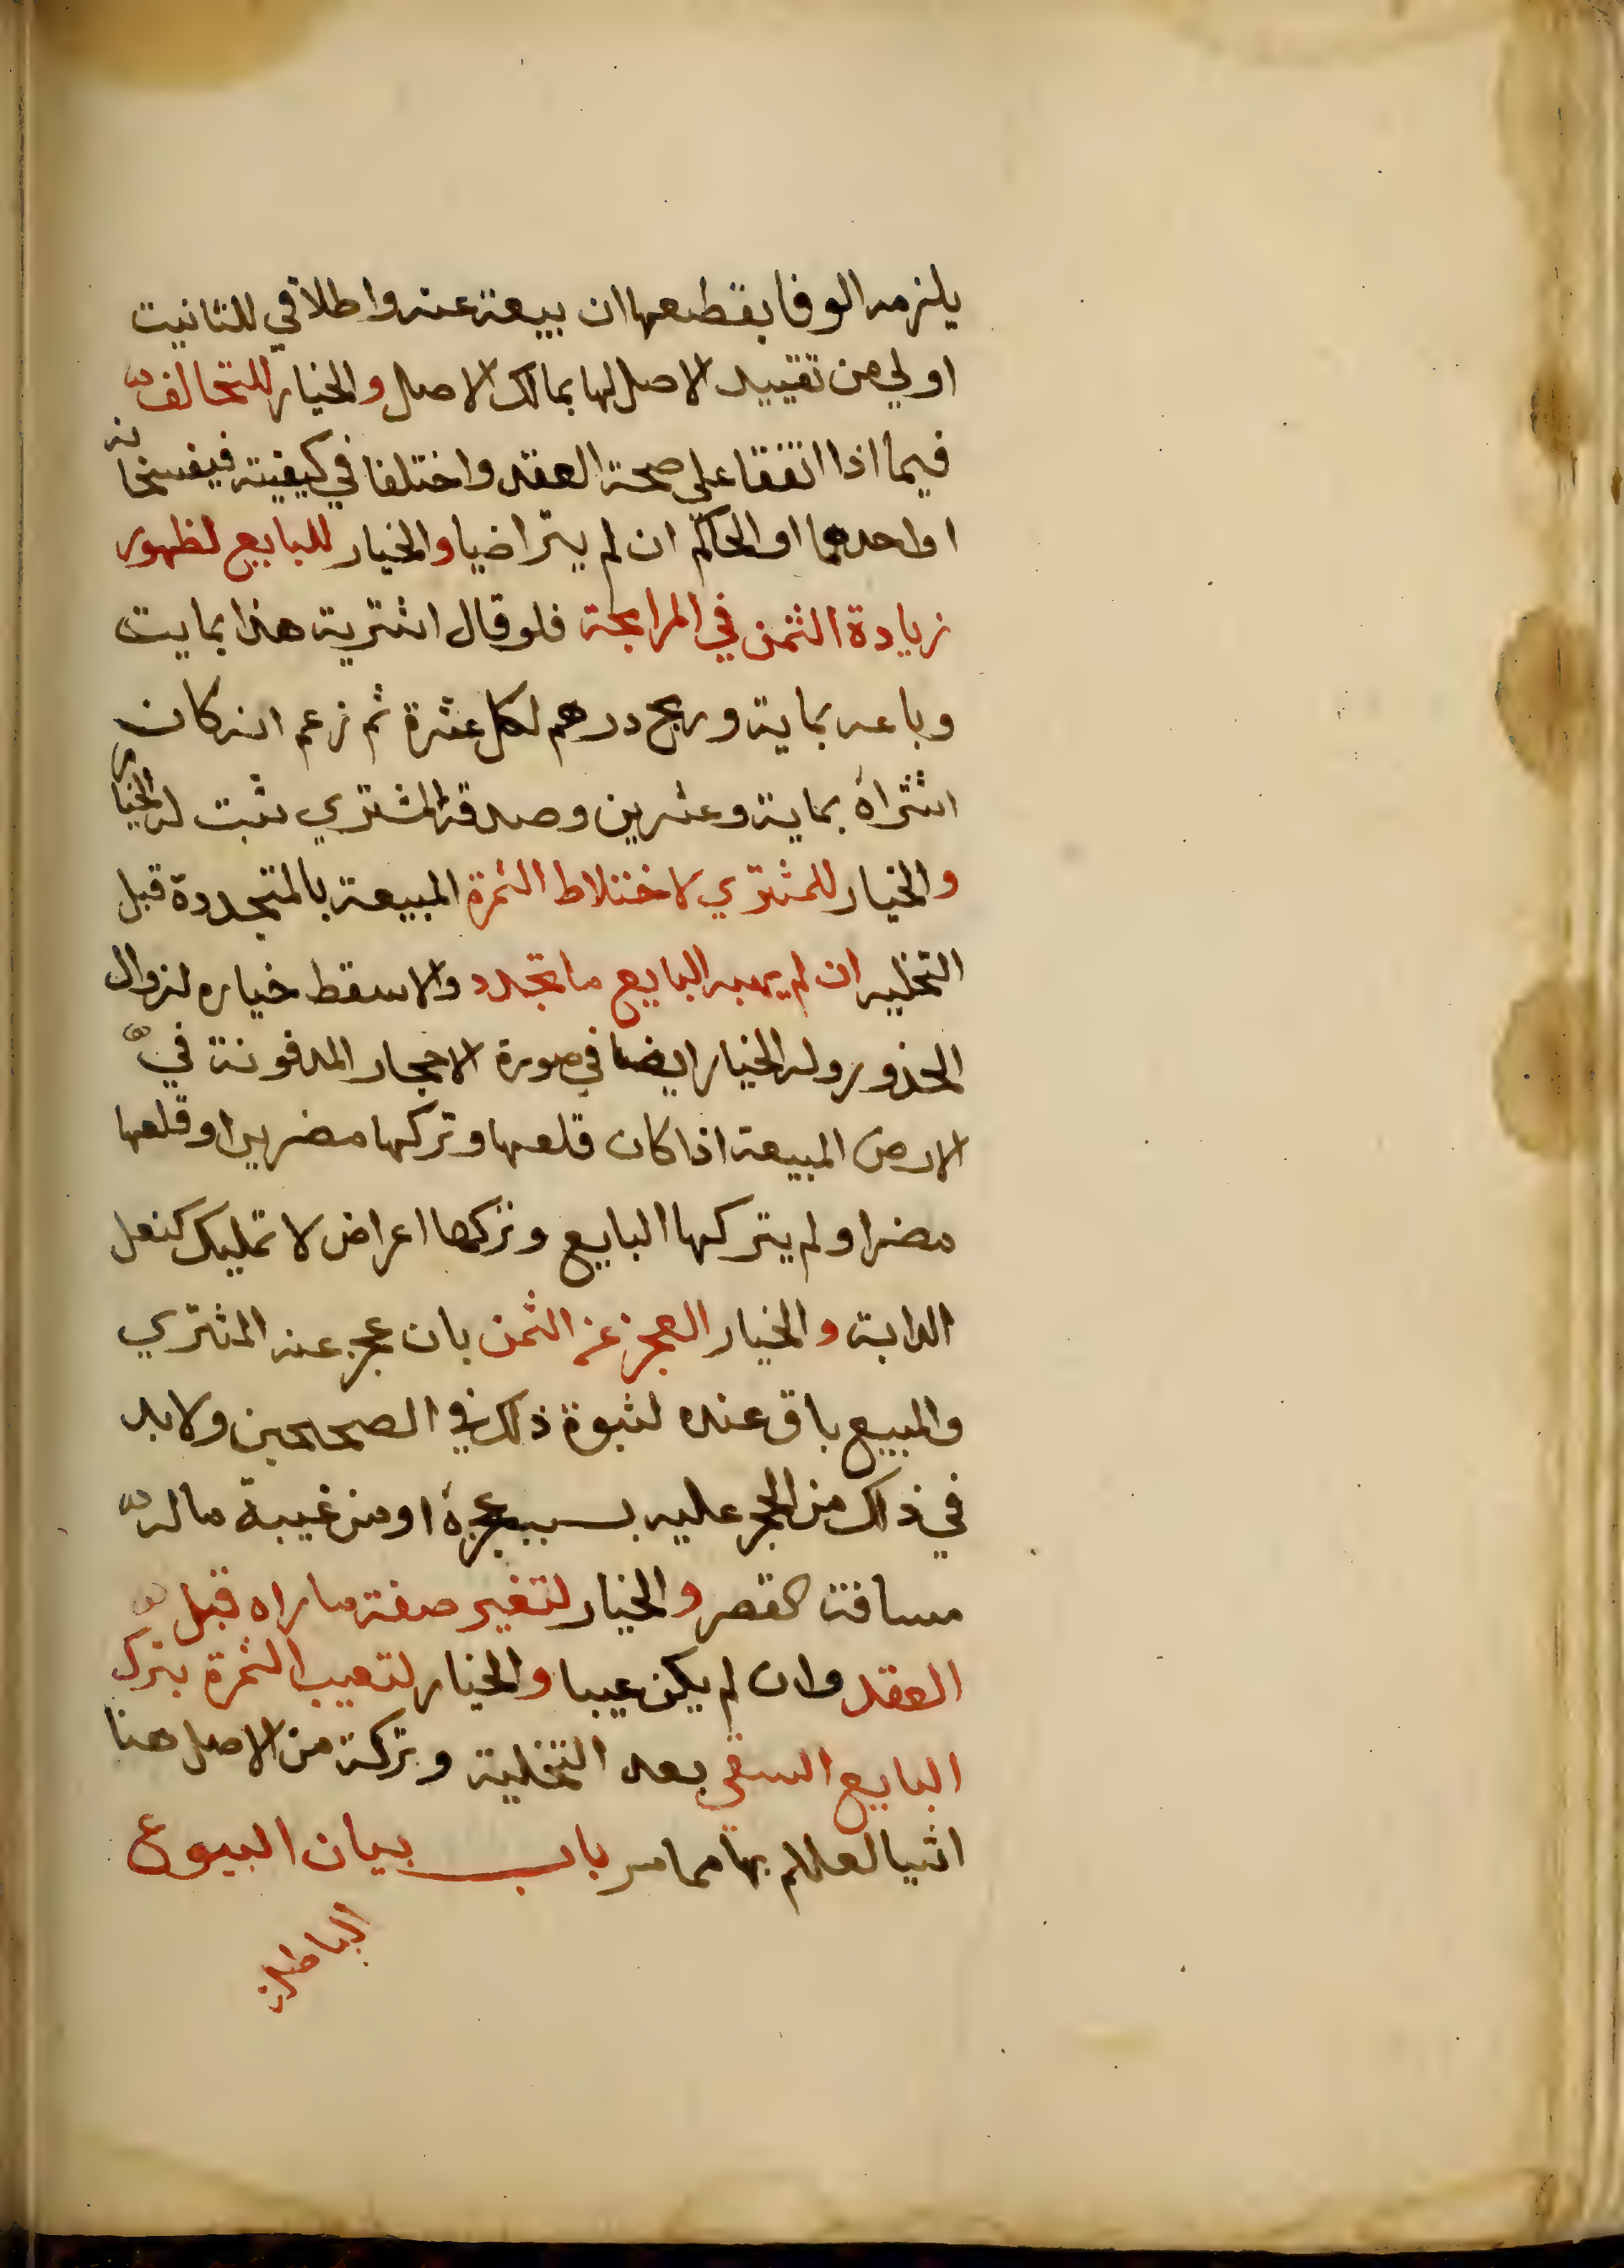 يلزمه الوفا بقطعها ان بيعة عنه واطلاقي للثانيت
اولي من تقييد الاصل لها بمالك الاصل والخيار للتحالف
فيما اذا اتفقا علي صحة العقد واختلفا في كيفيته فيفسخانه
او احدهما او الحاكم ان لم يتراضيا والخيار للبايع لظهور
زيادة الثمن في المرابحة فلو قال اشتريته هذا بمايت
وباعه بماية وربح درهم لكل عشرة ثم زعم انه كان
اشتراه بماية وعشرين وصدقه المشتري ثبت له الخيار
والخيار للمشتري لاختلاط الثمرة المبيعة بالمتجددة قبل
التخليه ان لم يهبه البايع ما تجدد والا سقط خياره لزوال
المحذور وله الخيار ايضا في صورة الاحجار المدفونة في
الارض المبيعة اذا كان قلعها وتركها مضرين او قلعها
مضرا ولم يتركها البايع وتركها اعراض لا تمليك كنعل
الدابة والخيار العجز عن الثمن بان عجز عنه المشتري
والمبيع باق عنده لثبوة ذلك في الصحيحين ولا بد
في ذلك من الحجر عليه بسبب عجزه او من غيبة ماله
مسافة القصر والخيار لتغير صفة ما راه قبل
العقد وان لم يكن عيبا والخيار لتعيب الثمرة بترك
البايع السقي بعد التخلية وتركت من الاصل هنا
اشيا لعلم بها مما مر باب بيان البيوع
الباطلة